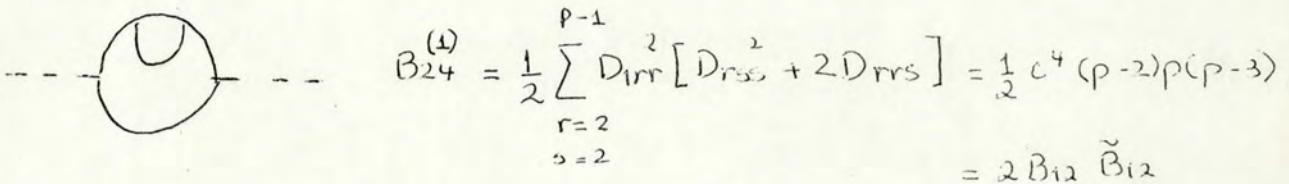 B₂₄⁽¹⁾ = ½ ∑_{r=2, s=2}^{p-1} D₁ᵣᵣ² [Dᵣₛₛ² + 2Dᵣᵣₛ] = ½ c⁴ (p-2)p(p-3)
= 2 B₁₂ B̃₁₂